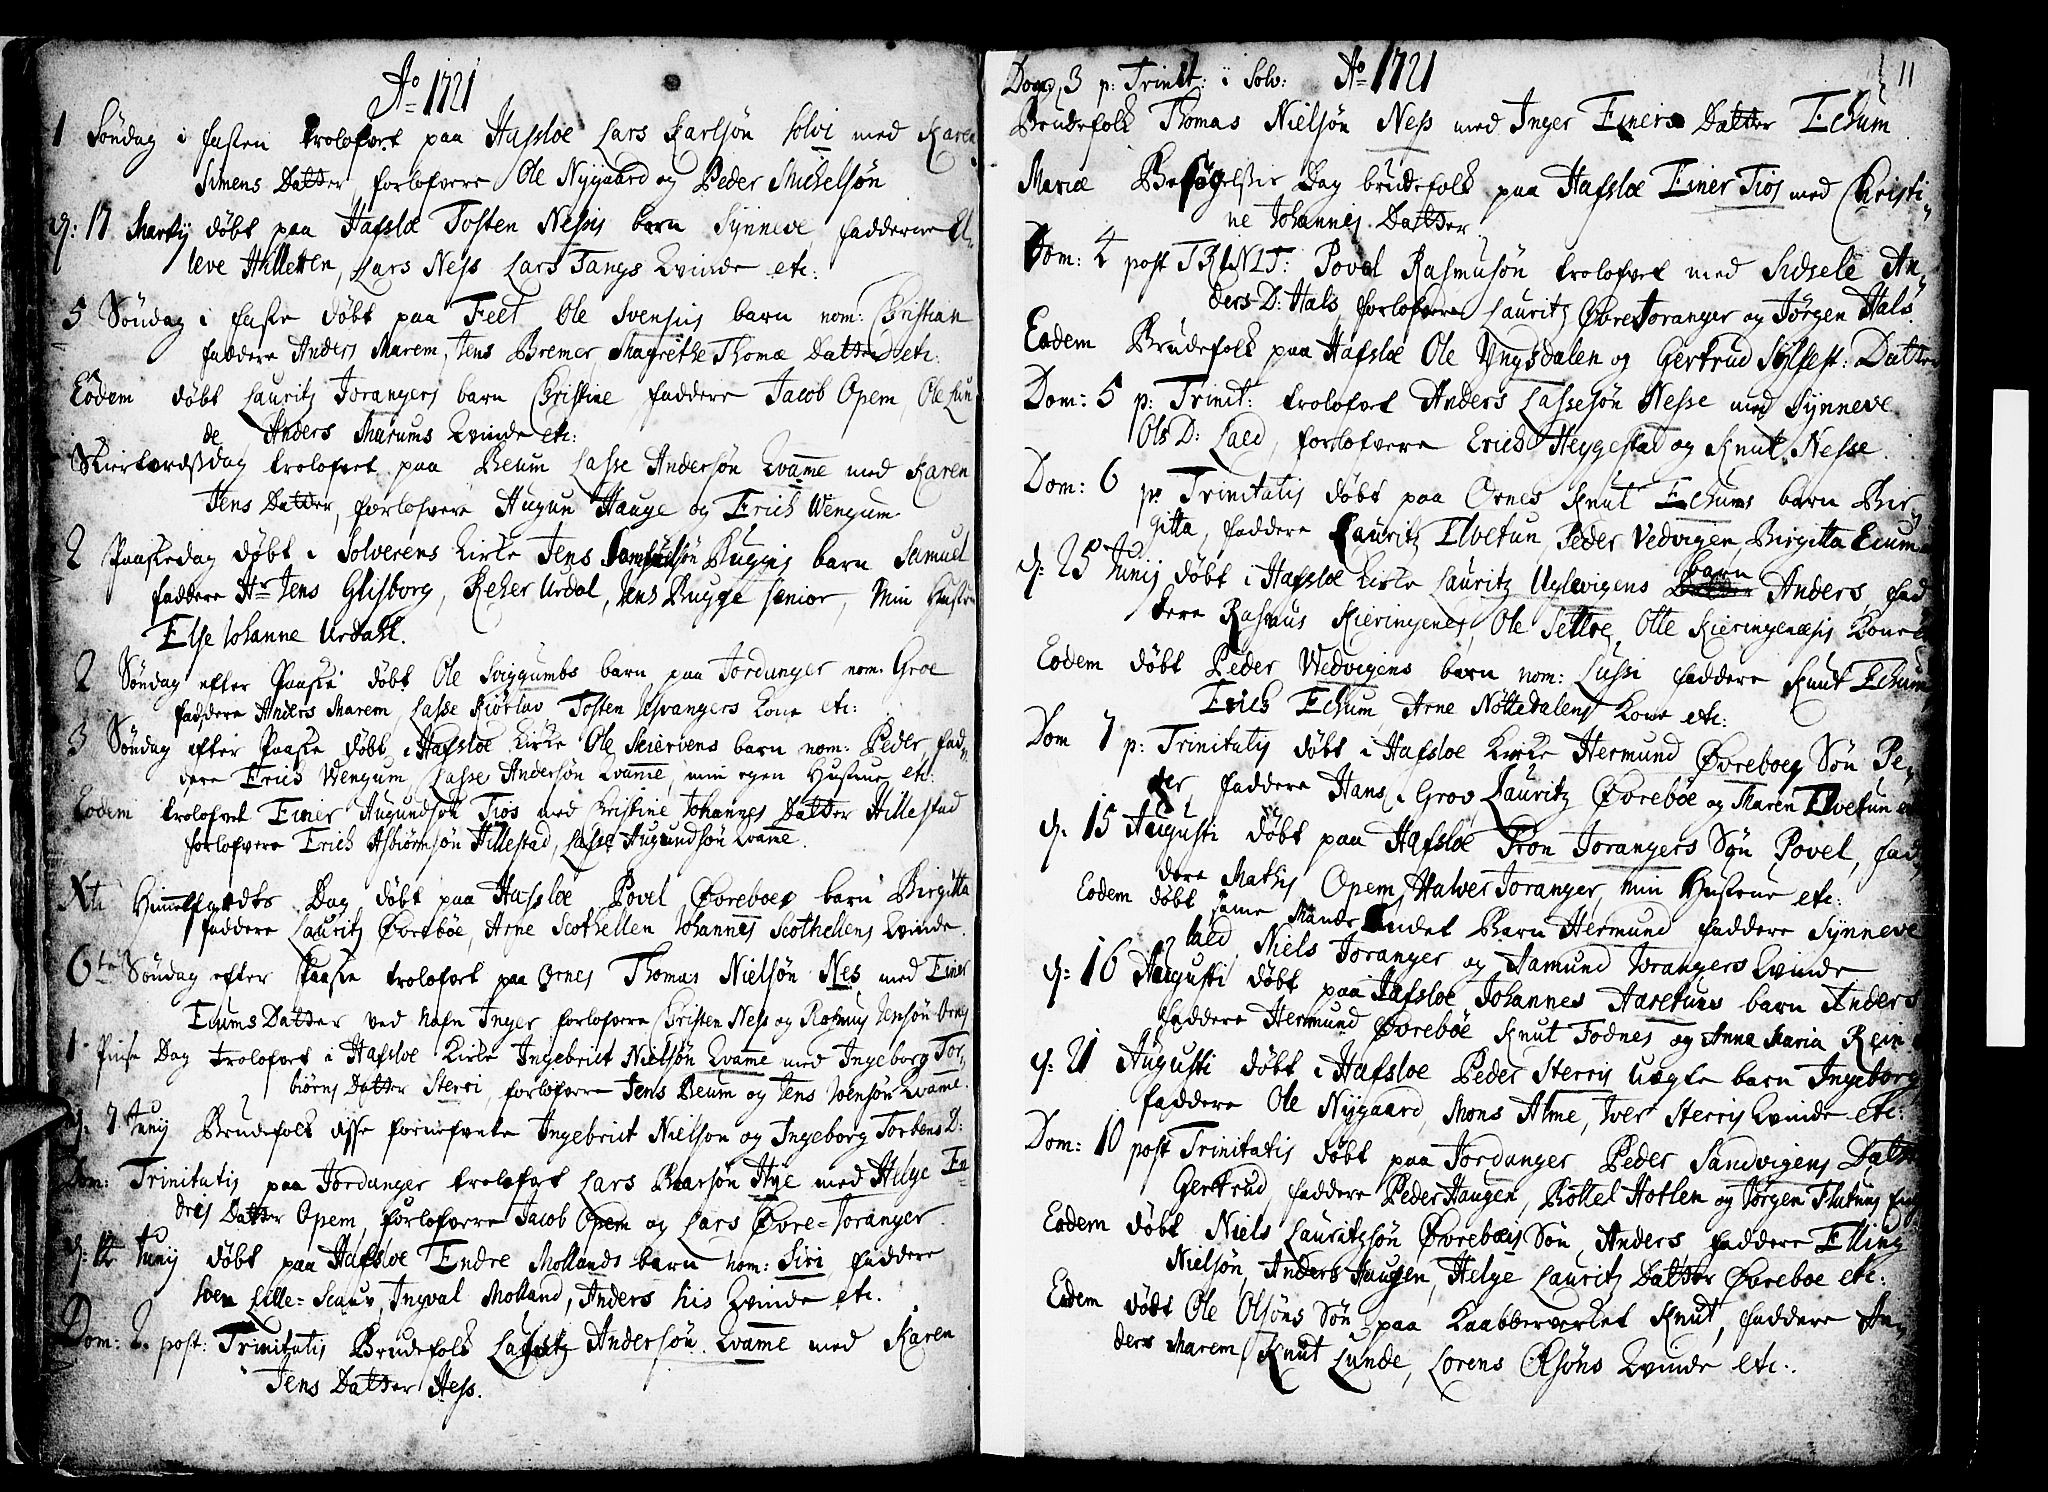 Ao 1721
1 Söndag i fasten trolofvet paa Hafsloe Lars Karlsön Solvi med Karen
Simens Datter, forlofvere Ole Nygaard og Peder Michelsön
d: 17 Martij döbt paa Hafsloe Tosten Nessis barn Synneve, fadderne El,
leve Hilleren, Lars Ness Lars Tangs Qvinde etc:
5 Söndag i faste döbt paa Feet Ole Svensiis barn nom: Christian
faddere Anders Marem, Jens Bremer, Magrethe Thomæ Datter etc:
Eodem döbt Lauritz Jorangers barn Christine faddere Jacob Opem Ole Lun
de, Anders Marums Qvinde etc:
Skiertorsdag trolofvet paa Beum Lasse Andersön Qvame med Karen
Jens Datter, forlofvere Augun Hauge og Erich Wengum
2 Paaskedag döbt i Solverens Kirke Jens Samuelsön Bugges barn Samuel
faddere Hr Jens Glisborg, Reher Urdal, Jens Bugge senior, Min Hustru
Else Johanne Urdahl.
2 Söndag efter Paaske döbt Ole Sviggumbs barn paa Jordanger nom: Groe
faddere Anders Marem, Lasse Kiörlav Tosten Usvangers Kone etc:
3 Söndag efter Paaske döbt i Hafsloe Kirke Ole Skiervens barn nom: Peder fad,,
dere Erich Wengum, Lasse Andersön Qvame, min egen Hustrue etc:
Eodem trolofvet Einer Augundsön Tiös med Christine Johannes Datter Hillestad
forlofvere Erich Asbiörnsön Hillestad, Lasse Augundsön Qvame.
Xti Himmelfardts Dag döbt paa Hafsloe Povel Övreboes barn Birgitta
faddere Lauritz Övreböe, Arne Scothellen Johannes Scothellens Qvinde.
6te Söndag efter Paaske trolofvet paa Ornes Thomas Nielsön Nes med Einer
Ecums Datter ved Nafn Inger forlofvere Christen Ness og Rasmus Jensön Ornes
1 Pinse Dag trolofvet i Hafsloe Kirke Ingebrict Nielsön Qvame med Ingeborg Tor,,
biörns Datter Sterri, forlofvere Jens Beum og Jens Joensön Qvame.
d: 7 Junij Brudefolk disse fornefnte Ingebrict Nielson og Ingeborg Torbens D:
Dom: Trinitatis paa Jordanger trolofvet Lars Bearsön Hye med Helge En
dris Datter Opem, forlofvere Jacob Opem og Lars Övre=Joranger.
d: 12 Junij döbt paa Hafsloe Endre Mollands barn nom: Siri, faddere
Lille=Scauv, Ingval Molland, Anders his Qvinde etc.
Dom: 2. post: Trinitatis Brudefolk Andersön Qvame med Karen
Jens Datter Hess.
11
Dom: 3 p: Trinit: i Solv: Ao 1721
Brudefolk Thomas Nielsön Ness med Inger Einers Datter Echum
Mariæ Besögelsis Dag brudefolk paa Hafsloe Einer Tiös med Christi,,
ne Johannes Datter
Dom: 4 post TRINIT: Povel Rasmusön trolofvet med Sidsele An,,
ders D: Hals, forlofvere Lauritz ÖvreJoranger og Jörgen Hals.
Eodem Brudefolk paa Hafsloe Ole Yngsdalen og Gertrud Sylfest: Datter
Dom: 5 p: Trinit: trolofvet Anders Lassesön Nesse med Synneve
Ols D: Laed, forlofvere Erich Heggestad og Knut Nesse.
Dom: 6 p: Trinitatis döbt paa Ornes Knut Echums barn Bir,,
gitta, faddere Lauritz Elvetun, Peder Vedvigen, Birgitta Ecum
d: 25 Junij döbt i Hafsloe Kirke Lauritz Uglevigens barn Anders, fad,
dere Rasmus Kieringenes, Ole Settoe, Olle Kieringenæsis Kone
Eodem döbt Peder Wedvigens barn nom: Lussi faddere Knut Echum
Erich Echum Arne Nöttedalens Kone etc:
Dom 7 p: Trinitatis döbt i Hafsloe Kirke Hermund Övreboes Sön Pe,,
der, faddere Hans i Grov Lauritz Övreböe og Maren Elvetun
d: 15 Augusti döbt paa Hafsloe Tron Jorangers Sön Povel, fad,,
dere Mathis Opem, Halver Joranger, min Hustrue etc:
Eodem döbt same Mands andet Barn Hermund faddere Synneve
Laed, Niels Joranger og Jamund Jorangers Qvinde
d: 16 Augusti döbt paa Hafsloe Johannes Haretuns barn Anders
faddere Hermund Övreböe Knut Fodnes og Anna Maria Rein
d: 21 Augusti döbt i Hafsloe Peder Sterris uægte barn Ingeborg
faddere Ole Nygaard, Mons Alme, Iver Sterris Qvinde etc:
Dom: 10 post Trinitatis döbt paa Jordanger Peder Sandvigens Datter
Gertrud, faddere Peder Haugen, Böttel Hotlen og Jörgen
Eodem döbt Niels Lauritzsön Övreböes Sön, Anders, faddere Elling
Nielsön, Anders Haugen, Helge Lauritz Datter Övreboe etc:
Eodem döbt Ole Olsöns Sön paa Kaabberverket Knut, faddere An,,
ders Marem, Knut Lunde, Lorens Olsöns Qvinde etc:.